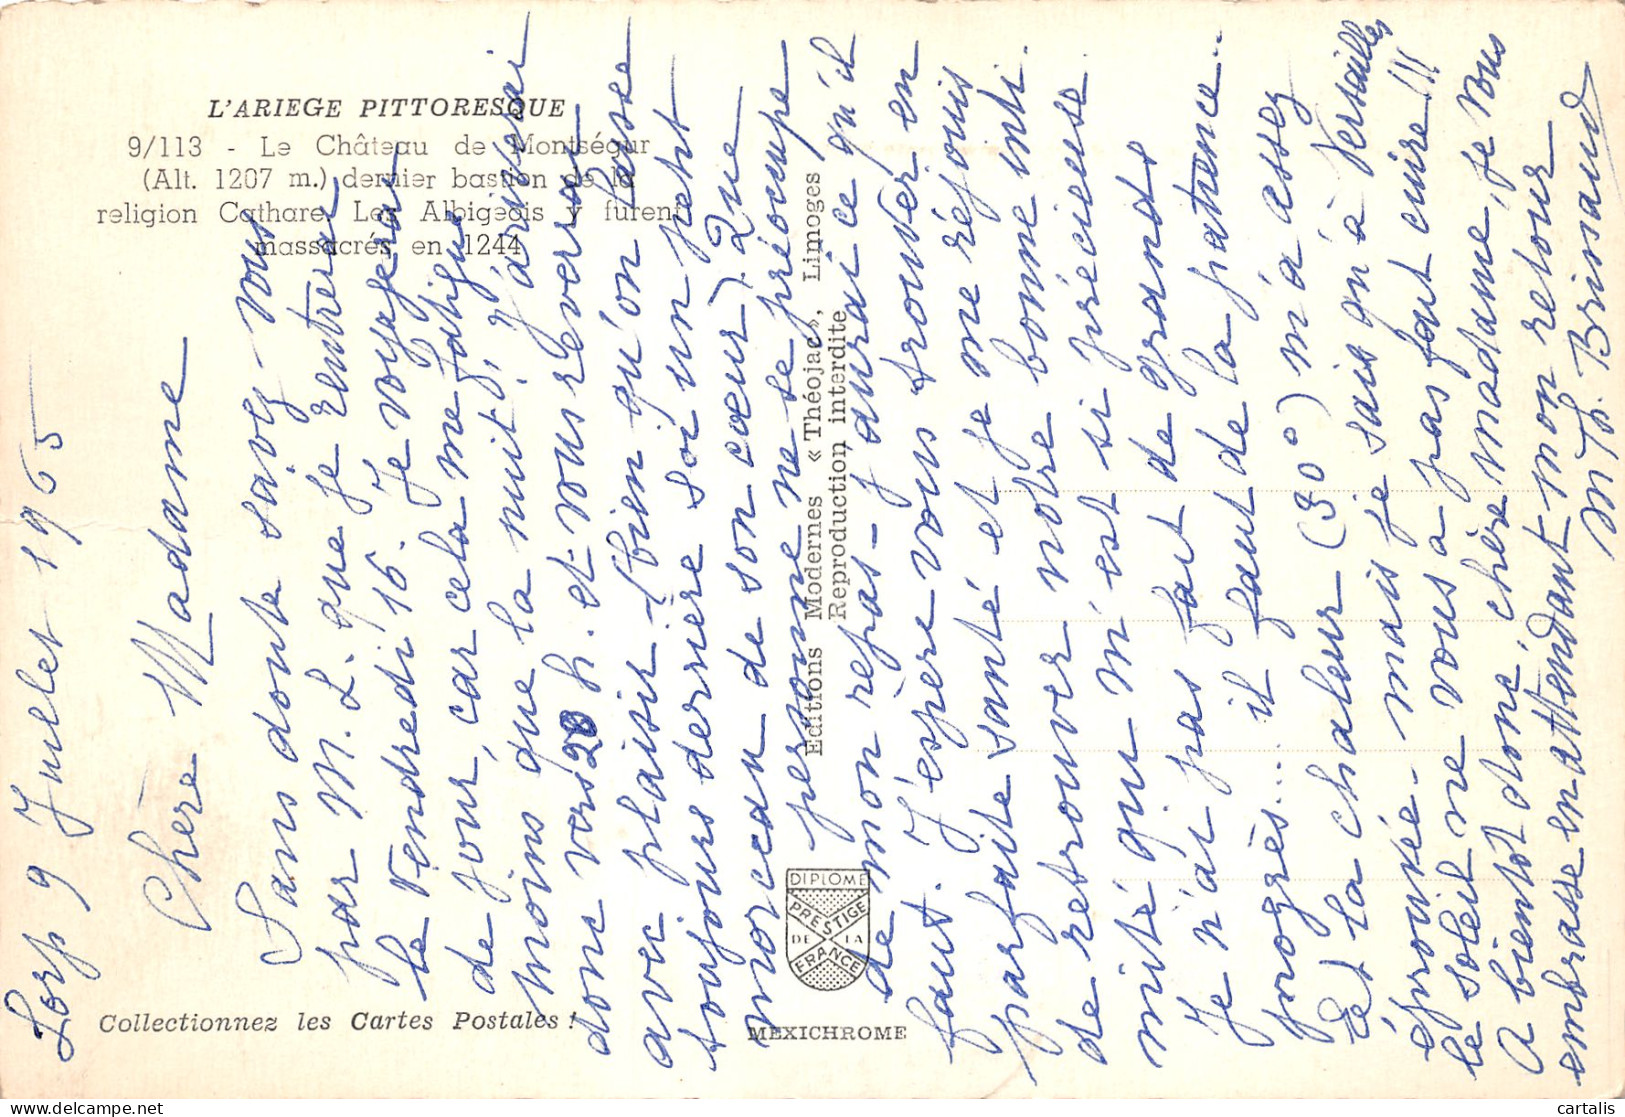 L'ARIEGE PITTORESQUE
9/113 - Le Château de Montségur
(Alt. 1207 m.) dernier bastion de la
religion Cathare. Les Albigeois y furent
massacrés en 1244
Collectionnez les Cartes Postales !
Editions Modernes « Théojac », Limoges
Reproduction interdite
DIPLOME
PRESTIGE
DE LA
FRANCE
MEXICHROME
Lorp 9 Juillet 1965
Chère Madame
Sans doute savez-vous
par M. L. que je rentrerai
le Vendredi 16. Je voyagerai
de jour, car cela me fatigue
moins que la nuit; j'arriverai
donc vers 20 h. et vous reverrai
avec plaisir (bien qu'on laisse
toujours derrière soi un petit
morceau de son cœur). Que
personne ne se préoccupe
de mon repas - j'aurai ce qu'il
faut. J'espère vous trouver en
parfaite santé et je me réjouis
de retrouver notre bonne inti-
mité qui m'est si précieuse.
Je n'ai pas fait de grands
progrès... il faut de la patience...
Et la chaleur (30°) m'a assez
éprouvée - mais je sais qu'à Versailles
le soleil ne vous a pas fait cuire !!!
A bientôt donc, chère madame, je vous
embrasse en attendant mon retour
M Th. Brissaud
cartalis